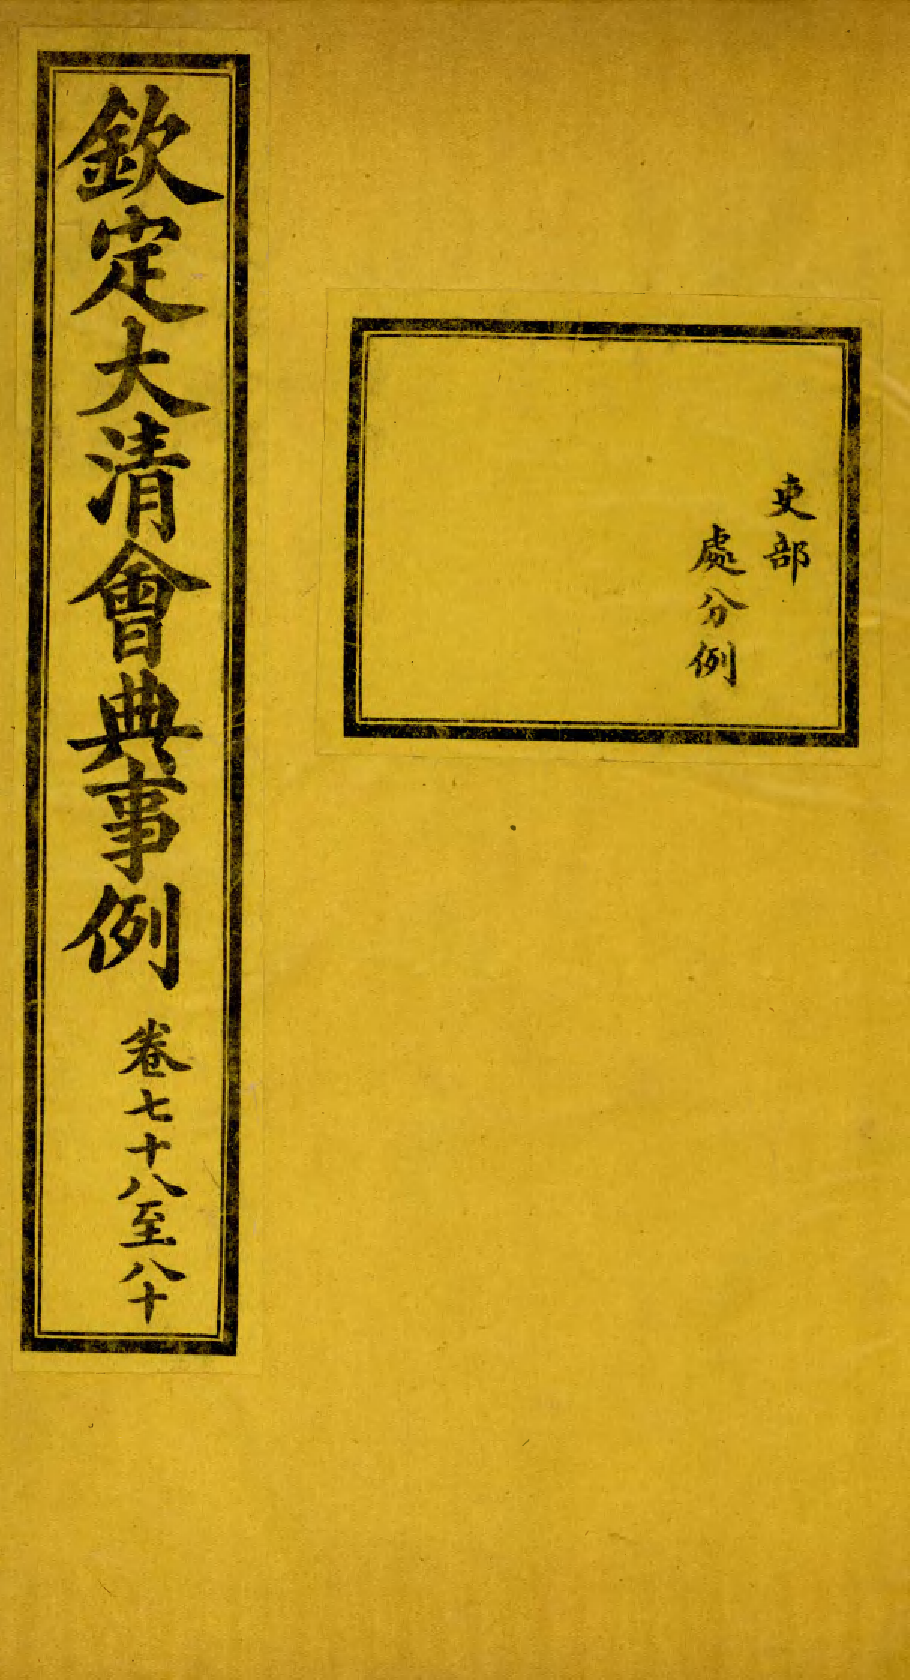 吏部
處分例
欽定大清會典事例
卷七十八至八十